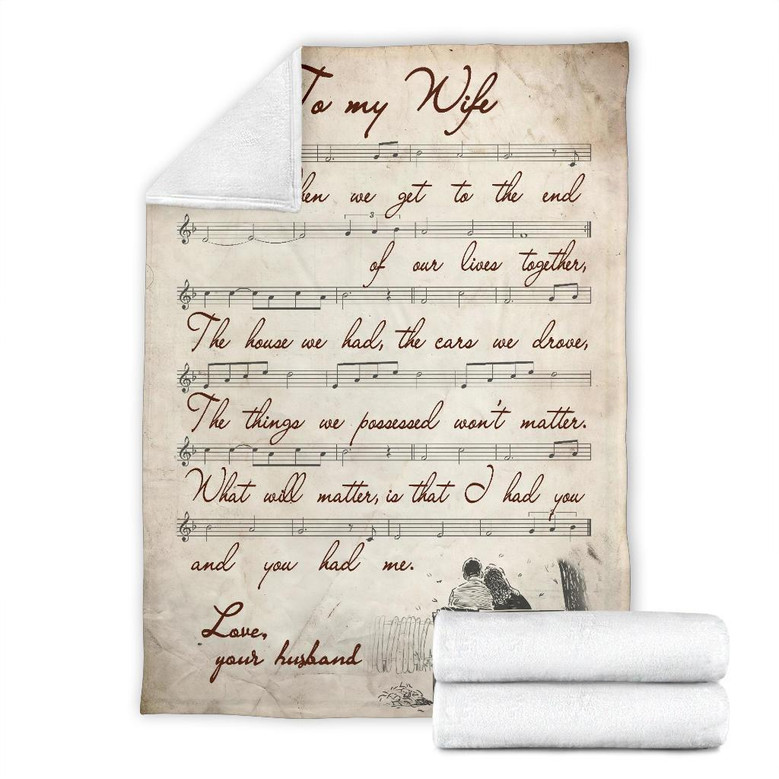 To my Wife
we get to the end
of our lives together,
The house we had, the cars we drove,
The things we possessed won't matter.
What will matter, is that I had you
and you had me.
Love,
your husband